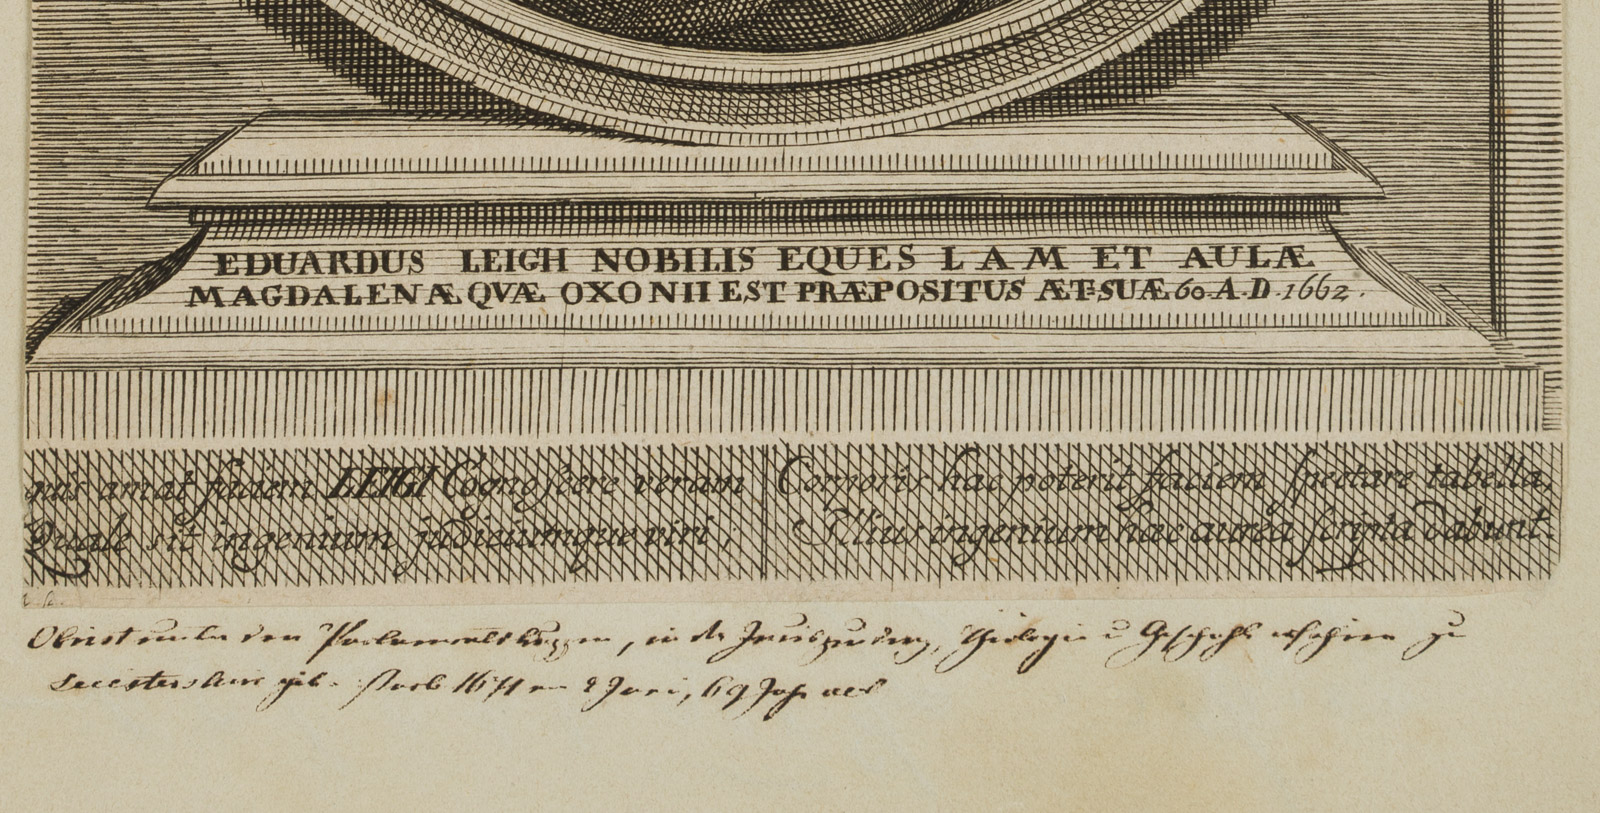 EDUARDUS LEIGH NOBILIS EQUES L A M ET AULÆ
MAGDALENÆ QVÆ OXONII EST PRÆPOSITUS ÆT·SUÆ 60·A·D·1662.
quis amat faciem LEIGI Cognoscere veram
Quale sit ingenium judiciumque viri;
Corporis hac poterit faciem spectare tabella,
Illius ingenium hac aurea scripta dabunt.
Obrist unter den Parlamentstruppen, in der, Theologie u Geschichte erfahren zu
Leicestershire geb. starb 1671 2 Juni, 69 Jahr alt